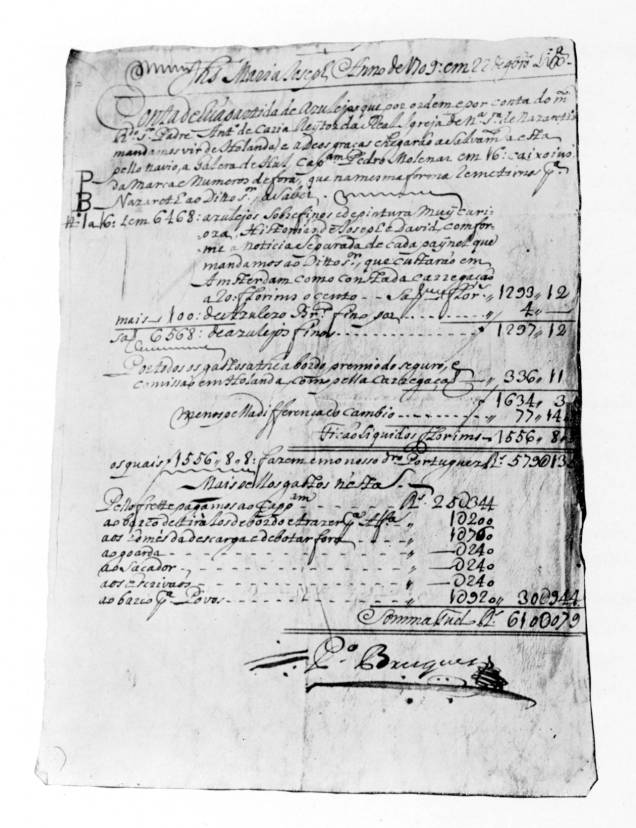 Jhs Maria Joseph, Anno de 1709: em 22 de 9bro Lix.ª
Conta de hũa partida de Azulejos que por ordem e por conta do m.
R.do S.r Padre Ant.º de Caria Reytor da Real Igreja de N.ª S.ra de Nazareth
mandamos vir de Holanda, e a Deos graças chegarão a Salvam.to a esta
pello navio, a Galera de Cap.am Pedro Molenar em 16: caixoins
P da Marca e Numeros de fora, que na mesma forma Remetemos
B Nazareth ao Ditto S.r a Saber
N: 1 a 16: em 6468: azulejos Sobrefinos e de pintura Muy curi
oza, Historia de Joseph e David, comfor
me a noticia Separada de cada paynel que
mandamos ao Ditto S.r, que custarão em
Amsterdam como consta da carregação
a 20: fflorins o cento flor.s 1293 12
mais 100: de Azulejo Br.co fino 4
6568: de azulejos finos 1297 12
Por todos os gastos athe a bordo, premio do seguro, e
comissão em Holanda, como pella Carregaçam 336 11
1634 3
menos pella differença do cambio 77 14
Ficão Liquidos fflorims 1556 8
os quais f 1556 8 8: fazem em o nosso dr.o Portuguez R.s 579013
Mais pellos gastos nesta
Pello ffrette pagamos ao Capp.am R.s 25044
ao barco de tirallos de bordo e trazer p.ª Alf.a 1200
aos homes da descarga e de botar fora
ao goarda 240
ao Sacador 240
aos escrivaos 240
ao barco p.ª Povos 1920 30944
Somma Tudo R.s 610079
P.o Bruguer